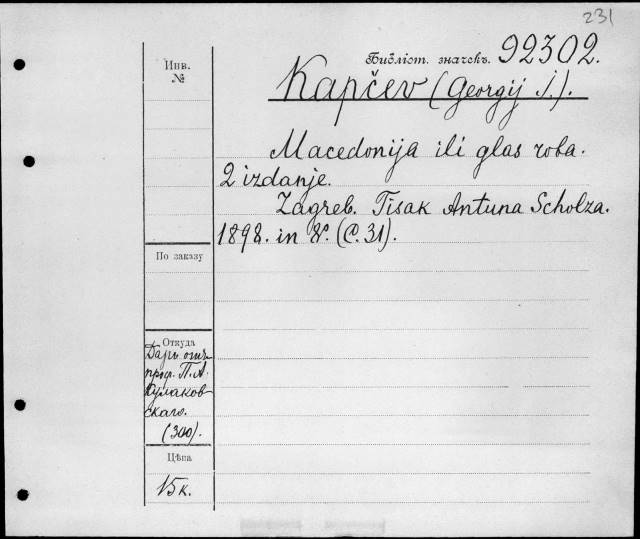 231
Библіот. значекъ. 92302.
Инв.
№
Kapčev (Georgij J.).
Macedonija ili glas roba.
2 izdanje.
Zagreb. Tisak Antuna Scholza.
1898. in 8°. (С. 31).
По заказу
Откуда
Даръ
проф. П. А.
Кулаков
скаго.
(300).
Цѣна
15 к.